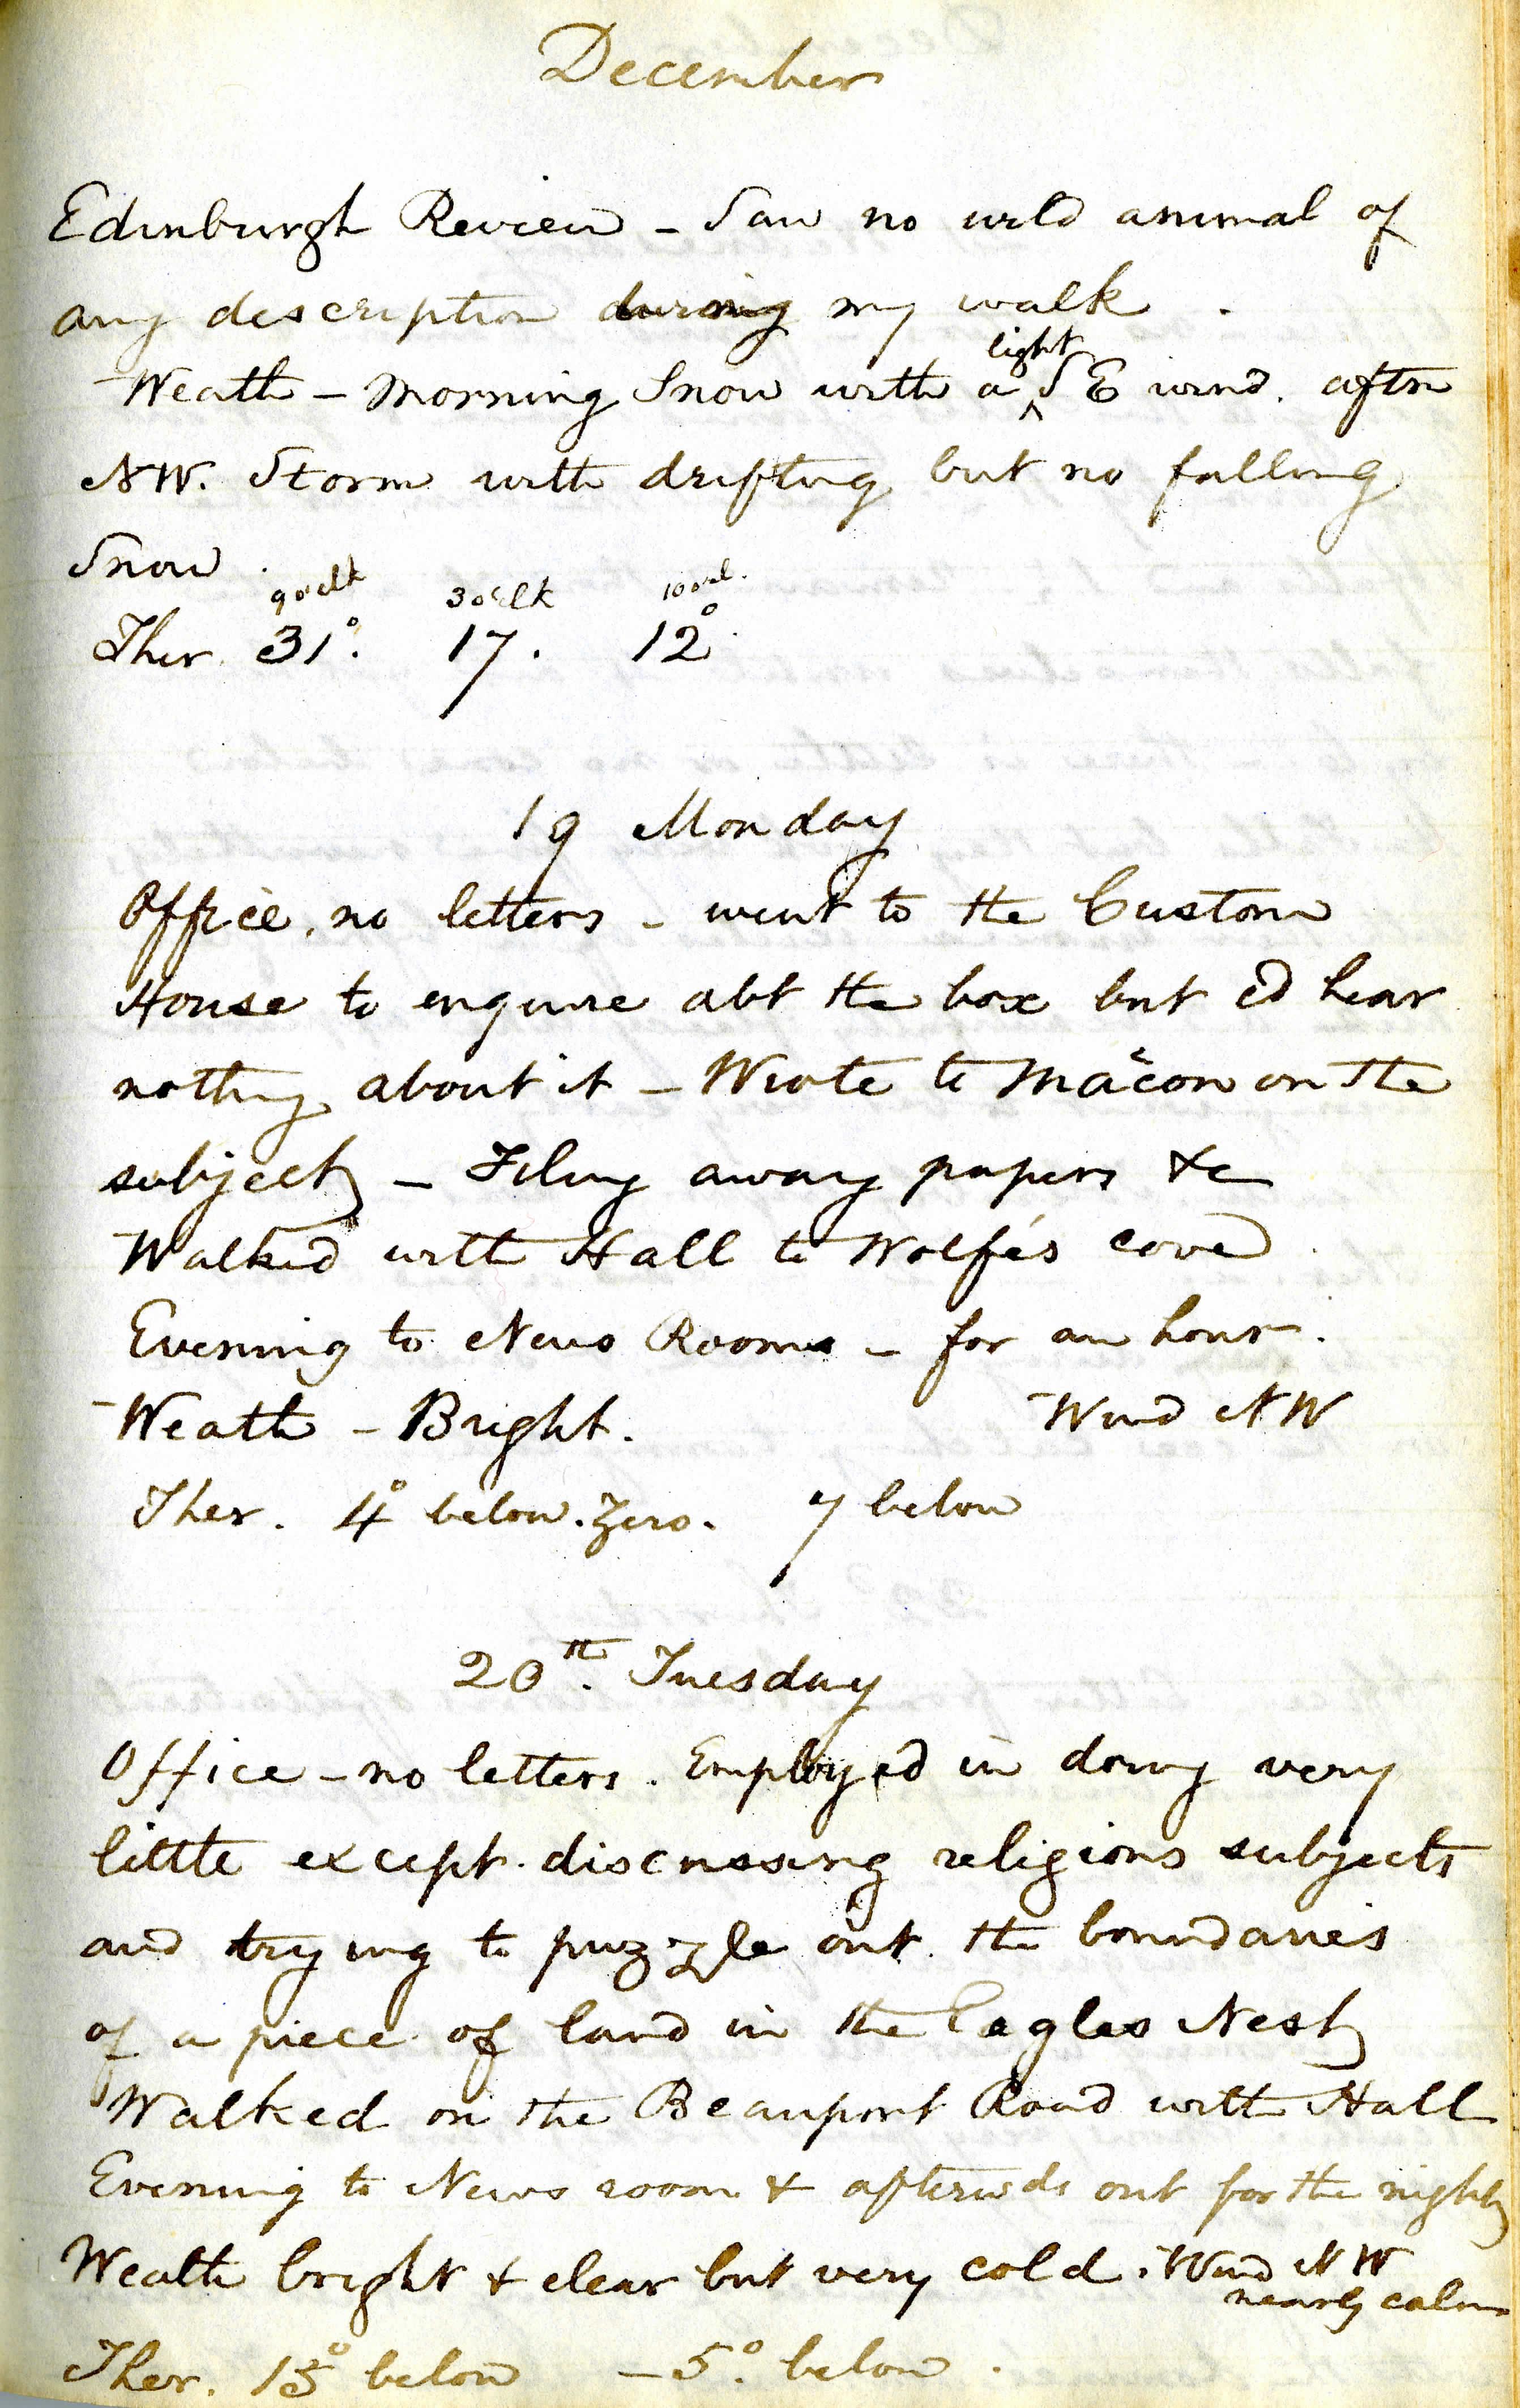 December
Edinburgh Review - Saw no wild animal of
any description during my walk .
Weath - Morning Snow with a light S E wind. aftn
NW. Storm with drifting but no falling
Snow .
9 o'clk 3 o'clk 10 o'cl.
Ther. 31°. 17. 12°.
19 Monday
Office, no letters - went to the Custom
House to enquire abt the box but cd hear
nothing about it - Wrote to on the
subject - Filing away papers &c
Walked with Hall to Wolfe's cove .
Evening to News Rooms - for an hour.
Weath - Bright. Wind NW
Ther. 4° below. Zero. 7 below
20th. Tuesday
Office - no letters. Employed in doing very
little except discussing religious subjects
and trying to puzzle out the boundaries
of a piece of land in the Eagles Nest
Walked on the Beauport Road with Hall
Evening to News room & afterwds out for the night
Weath bright & clear but very cold. Wind NW
nearly calm
Ther. 15° below - 5°. below .